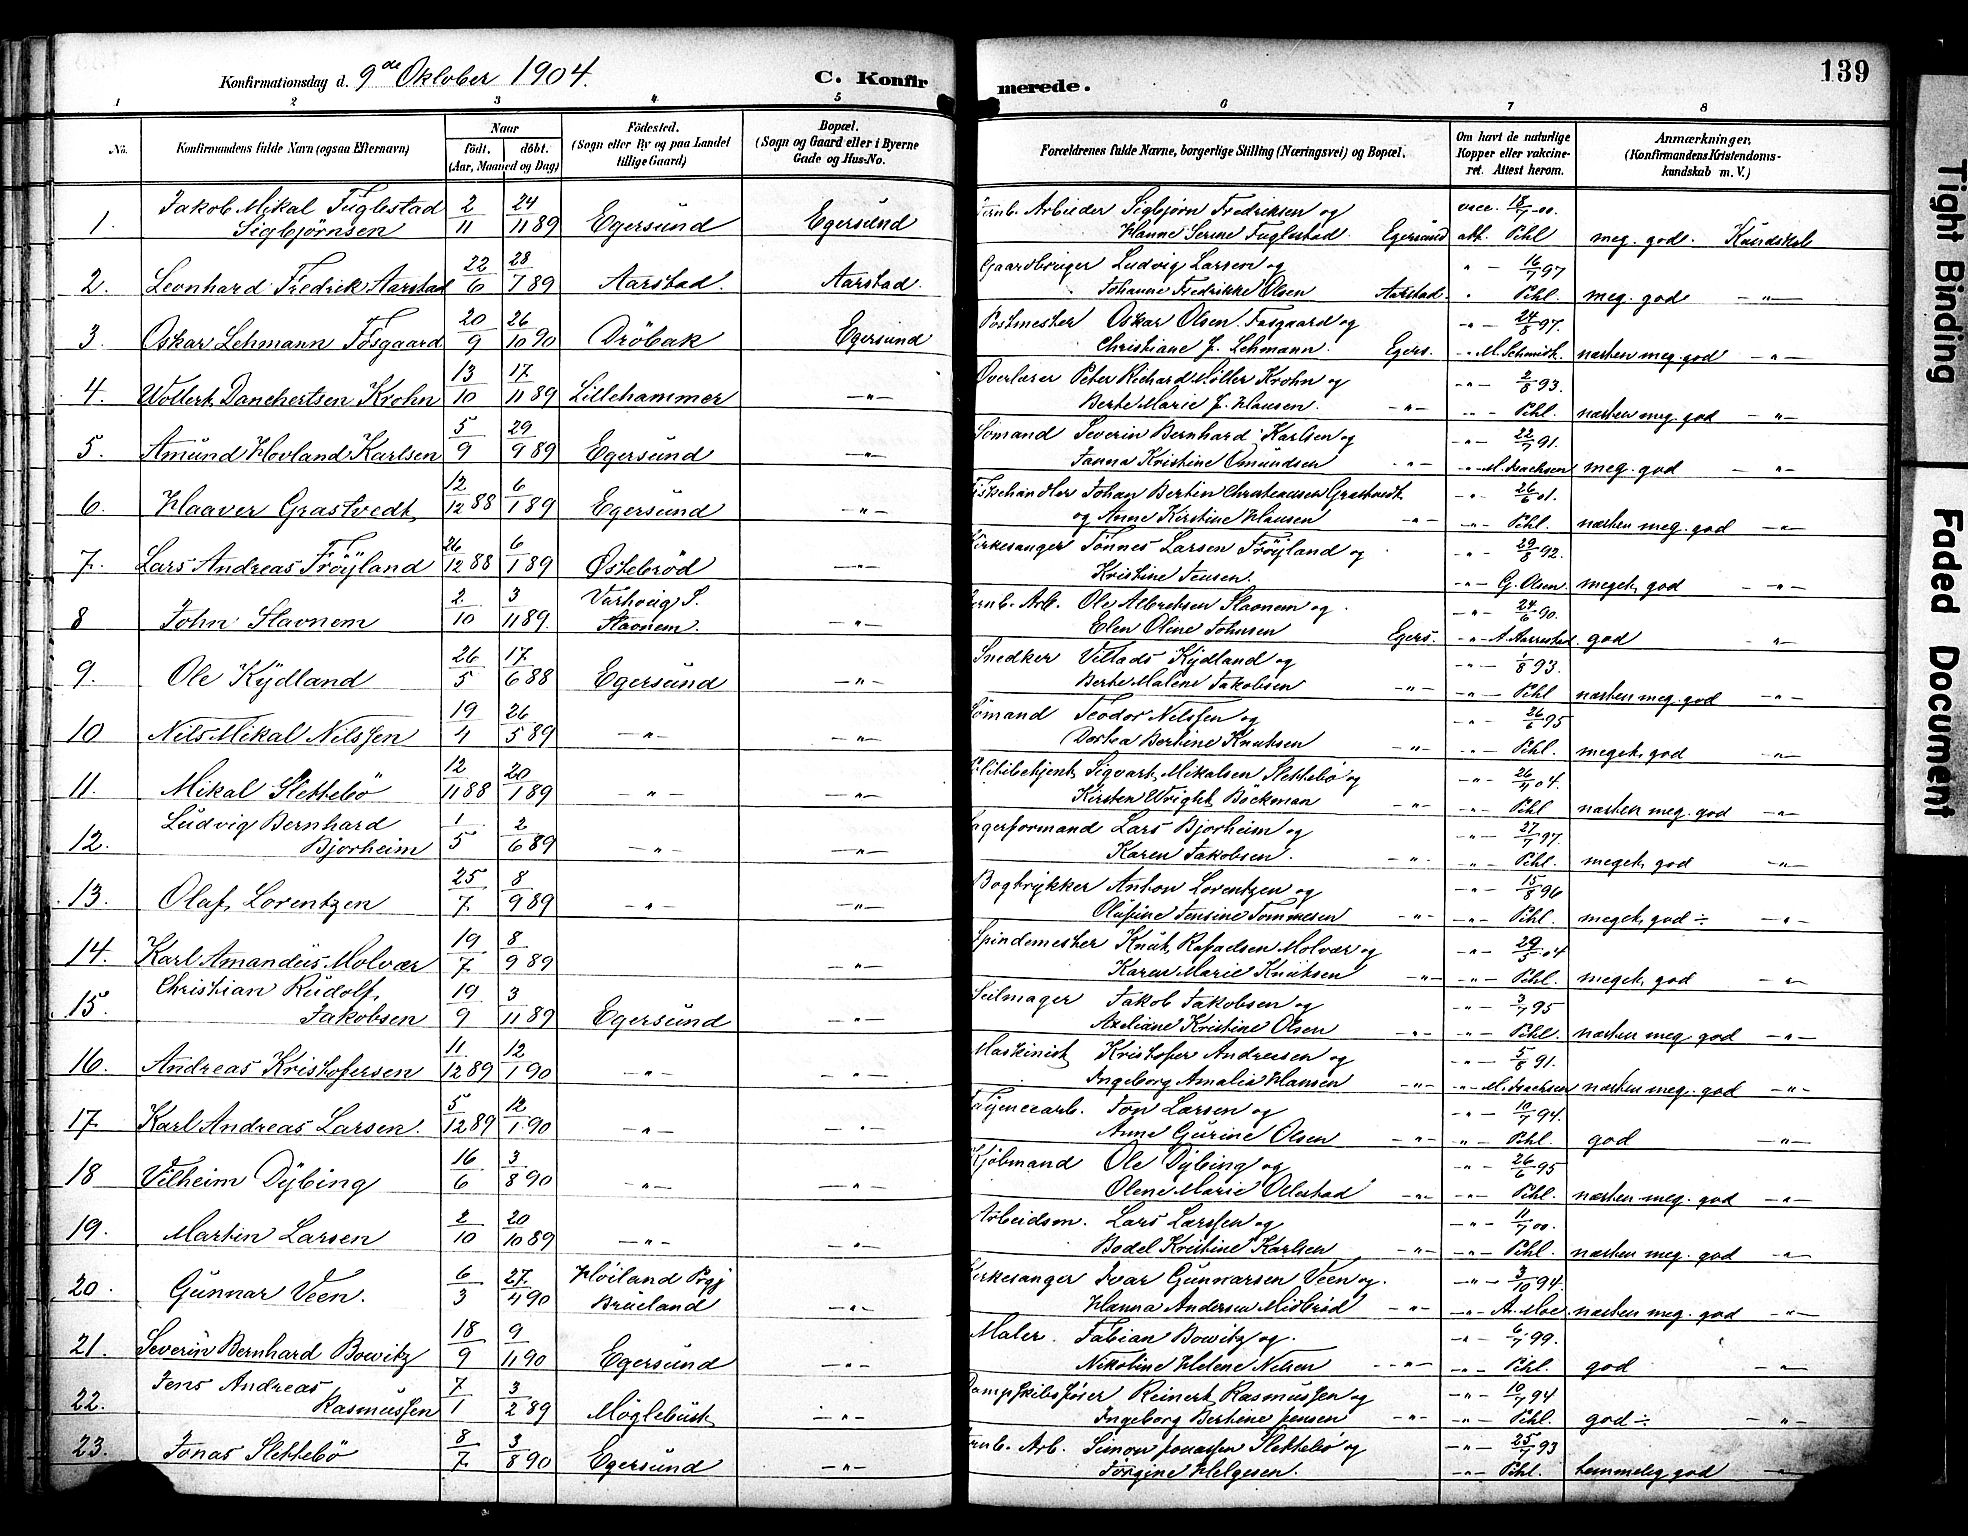 Konfirmationsdag d. 9de Oktober 1904. C. Konfirmerede. 139
1 2 3 4 5 6 7 8
No. Konfirmandens fulde Navn (ogsaa Efternavn) Naar født, døbt. (Aar, Maaned og Dag) Fødested. (Sogn eller By og paa Landet tillige Gaard) Bopæl. (Sogn og Gaard eller i Byerne Gade og Hus-No. Forældrenes fulde Navne, borgerlige Stilling (Næringsvei) og Bopæl. Om havt de naturlige Kopper eller vakcineret. Attest herom. Anmærkninger. (Konfirmandens Kristendomskundskab m. V.)
1. Jakob Mikal Fuglestad Sigbjørnsen 2/11 24/11 89 Egersund Egersund Jernb. Arbeider Sigbjørn Fredriksen og Hanne Serine Fuglestad. Egersund vacc. 18/7 00. att. Pihl meg. god. Kundskab
2. Leonhard Fredrik Aarstad 22/6 28/7 89 Aarstad. Aarstad. Gaardbruger Ludvig Larsen og Johanne Fredrikke Olsen Aarstad. " - 16/7 97 " Pihl. meg. god - " -
3. Oskar Lehmann Fosgaard 20/9 26/10 90 Drøbak Egersund Postmester Oskar Olsen Fosgaard og Christiane J. Lehmann. Egers. - " - 24/8 97. - " M. Schmidt. næsten meg. god - " -
4. Wollert Danchertsen Krohn 13/10 17/11 89 Lillehammer - " - Overlærer Peter Richard Møller Krohn og Berte Marie J. Hansen. - " - - " - 2/8 93. - " - Pihl. næsten meg. god - " -
5. Amund Hovland Karlsen 5/9 29/9 89 Egersund - " - Sømand Severin Bernhard Karlsen og Janna Kristine Omundsen - " - - " - 22/9 91. - " - M. Isachsen meg. god - " -
6. Haaver Grastvedt 12/12 88 6/1 89 Egersund - " - Fiskehandler Johan Bertin Christensen Grastvedt og Anne Kirstine Hansen - " - - " - 26/6 01. - " - Pihl. næsten meg. god - " -
7. Lars Andreas Frøyland 26/12 88 6/1 89 Østebrød - " - Kirkesanger Tønnes Larsen Frøyland og Kristine Jensen. - " - 29/8 92. - " - G. Olsen meget god - " -
8 John Slavnem 2/10 3/11 89. Varhoug S. Slavnem. - " - Jernb. Arb. Ole Albretsen Slavnem og Elen Oline Johnsen Egers. - " - 24/6 90. - " - A. Aarrestad. god "
9. Ole Kydland 26/5 17/6 88 Egersund - " - Snedker Villads Kydland og Berte Malene Jakobsen - " - - " - 1/8 93. - " - Pihl næsten meg. god - " -
10 Nils Mikal Nilssen 19/4 26/5 89 - " - - " - Sømand Teodor Nilssen og Dortea Bertine Knutsen - " - - " - 26/6 95 - " - Pihl. meget god - " -
11. Mikal Slettebø 12/11 88 20/1 89 - " - - " - Politibetjent Sigvart Mikalsen Slettebø og Kirsten Wright Bøckman - " - - " - 26/4 04. - " - Pihl næsten meg. god - " -
12. Ludvig Bernhard Bjorheim 1/5 2/6 89 - " - - " - Lagerformand Lars Bjorheim og Karen Jakobsen. - " - - " - 27/7 97. - " - Pihl. meget god - " -
13. Olaf Lorentzen 25/7. 8/9 89 - " - - " - Bogtrykker Anton Lorentzen og Olufine Jensine Tommesen - " - - " - 15/8 96 - " - Pihl. meget god ÷ - " -
14. Karl Amandus Molvær 19/7 8/9 89 - " - Spindemester Knut Rafaelsen Molvær og Karen Marie Knutsen - " - - " - 29/5 04 - " - Pihl. meget god - " -
15. Christian Rudolf Jakobsen 19/9 3/11 89 Egersund - " - Seilmager Jakob Jakobsen og Axeliane Kristine Olsen - " - - " - 3/7 95 - " - Pihl. næsten meg. god - " -
16. Andreas Kristofersen 11/12 89 12/1 90 - " - - " - Maskinist Kristofer Andresen og Ingeborg Amalia Hansen - " - - " - 5/8 91. - " - M. Isachsen næsten meg. god - " -
17. Karl Andreas Larsen. 5/12 89 12/1 90 - " - - " - Fayencearb. Jon Larsen og Anne Gurine Olsen - " - - " - 10/7 94. - " - Pihl. god - " -
18 Vilheim Dybing 16/6 3/8 90 - " - - " - Kjøbmand Ole Dybing og Olene Marie Ollestad - " - - " - 26/6 95 - " - Pihl. næsten meg. god - " -
19. Martin Larsen 2/10 20/10 89 - " - - " - Arbeidsm. Lars Larssen og Bodel Kristine Karlsen - " - - " - 11/7 00. - " - Pihl. næsten meg. god - " -
20. Gunnar Veen. 6/3 27/4 90 Høiland Prgj Brueland - " - Kirkesanger Ivar Gunnarsen Veen og Hanna Andersen Midbrød - " - - " - 3/10 94. - " - A. Moe næsten meg. god - " -
21. Severin Bernhard Bowitz 18/9 9/11 90 Egersund - " - Maler. Fabian Bowitz og Nikoline Helene Nilsen - " - - " - 6/7 99. - " - Pihl. god - " -
22. Jens Andreas Rasmussen 7/1 3/2 89 Møglebust - " - Dampskibsfører Reinert Rasmussen og Ingeborg Bertine Jensen - " - - " - 10/7 94 - " - Pihl. god ÷ - " -
23. Jonas Slettebø 8/7 3/8 90 Egersund - " - Jernb. Arb. Simon Jonassen Slettebø og Jørgine Helgesen. - " - 25/7 93 - " - Pihl. temmelig god - " -
Tight Binding
Faded Document